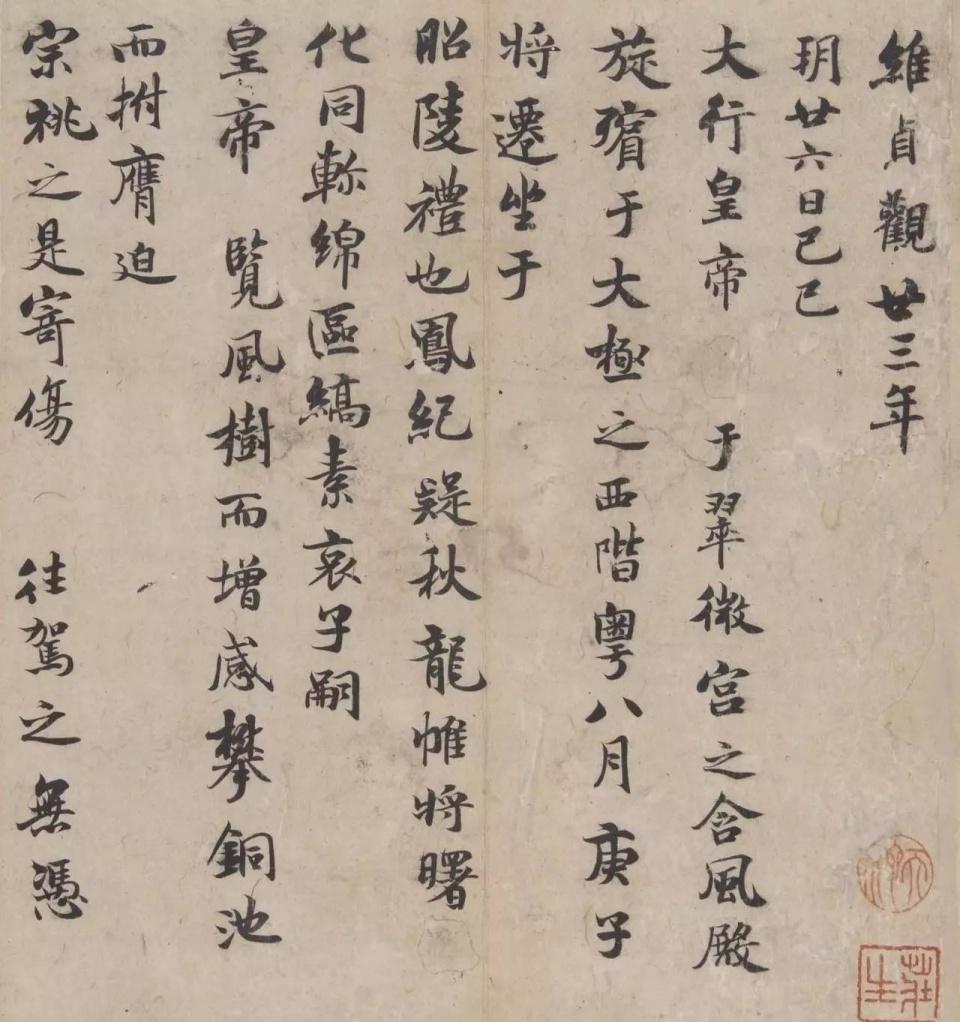 維貞觀廿三年
玥廿六日己巳
大行皇帝 于翠微宮之含風殿
旋殯于大極之西階粵八月庚子
將遷坐于
昭陵禮也鳳紀疑秋龍帷將曙
化同軫綿區縞素哀子嗣
皇帝 覽風樹而增感攀銅池
而拊膺迫
宗祧之是寄傷 往駕之無憑